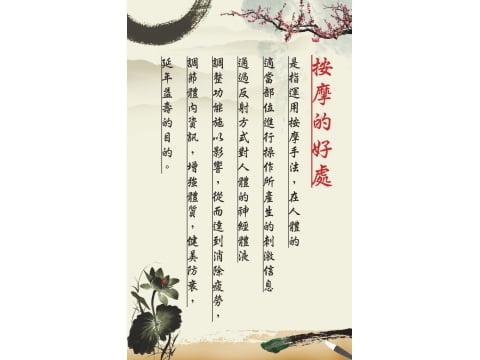 按摩的好處
是指運用按摩手法，在人體的
適當部位進行操作所產生的刺激信息
通過反射方式對人體的神經體液
調整功能施以影響，從而達到消除疲勞，
調節體內資訊，增強體質，健美防衰，
延年益壽的目的。